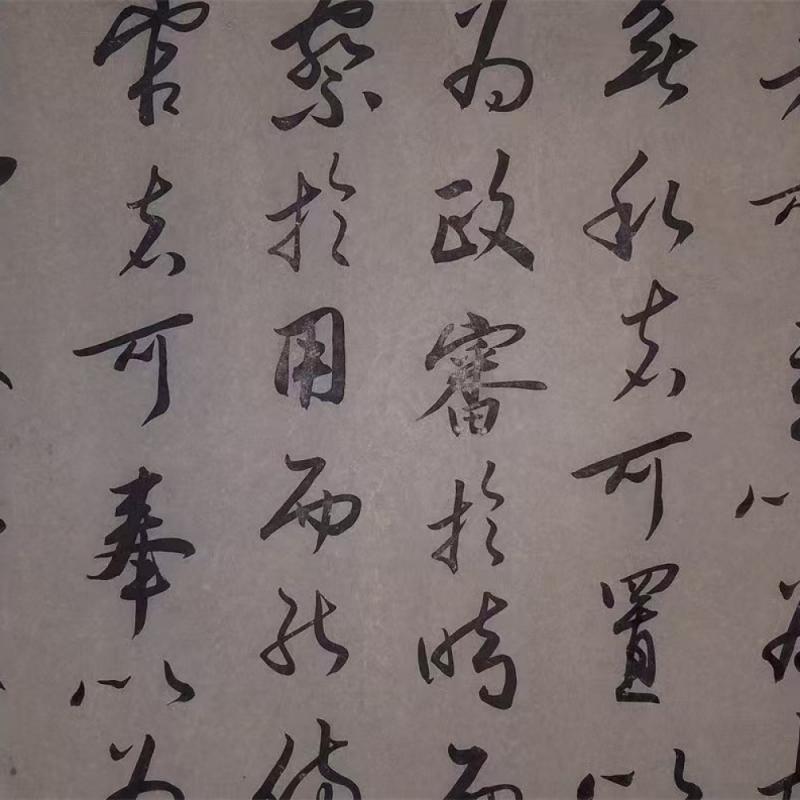 無私者可置以
為政審於時而
察於用而能備
官者可奉以為